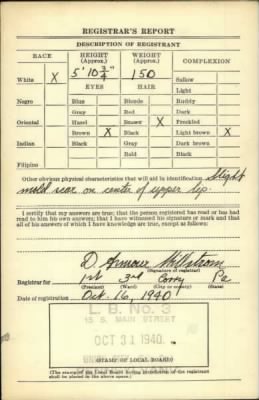 REGISTRAR'S REPORT
DESCRIPTION OF REGISTRANT
RACE HEIGHT (Approx.) WEIGHT (Approx.) COMPLEXION
White X 5' 10 3/4" 150 Sallow
EYES HAIR Light
Negro Blue Blonde Ruddy
Gray Red Dark
Oriental Hazel Brown X Freckled
Brown X Black Light brown X
Indian Black Gray Dark brown
Bald Black
Filipino
Other obvious physical characteristics that will aid in identification Slight
mold scar on center of upper lip.
I certify that my answers are true; that the person registered has read or has had
read to him his own answers; that I have witnessed his signature or mark and that
all of his answers of which I have knowledge are true, except as follows:
D Armour Millstrom
(Signature of registrar)
Registrar for 1st 3rd Corry Pa
(Precinct) (Ward) (City or county) (State)
Date of registration Oct. 16, 1940
L. B. No. 3
15 S. MAIN STREET
OCT 31 1940
(STAMP OF LOCAL BOARD)
(The stamp of the Local Board having jurisdiction of the registrant
shall be placed in the above space.)